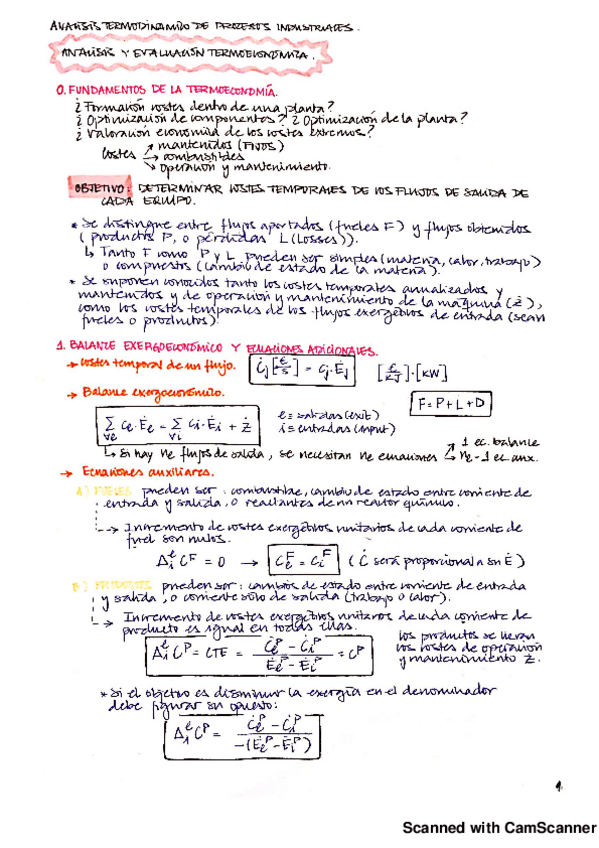 ANALISIS TERMODINAMICO DE PROCESOS INDUSTRIALES.
ANALISIS Y EVALUACIÓN TERMOECONOMICA.
0. FUNDAMENTOS DE LA TERMOECONOMÍA.
¿Formación costes dentro de una planta?
¿Optimización de componentes? ¿Optimización de la planta?
¿Valoración economica de los costes externos?
Costes → mantenidos (FIJOS)
→ combustibles
→ operación y mantenimiento.
OBJETIVO: DETERMINAR COSTES TEMPORALES DE LOS FLUJOS DE SALIDA DE
CADA EQUIPO.
* Se distingue entre flujos aportados (fueles F) y flujos obtenidos
(productos P, o pérdidas L (Losses)).
↳ Tanto F como P y L pueden ser simples (materia, calor, trabajo)
o compuestos (cambio de estado de la materia).
* Se suponen conocidos tanto los costes temporales anualizados y
mantenidos y de operación y mantenimiento de la máquina (Ż),
como los costes temporales de los flujos exergéticos de entrada (sean
fueles o productos).
1. BALANCE EXERGOECONÓMICO Y ECUACIONES ADICIONALES.
→ Costes temporal de un flujo. Ċj [€/s] = cj · Ėj [€/kJ] · [kW]
→ Balance exergoeconómico. F = P + L + D
∑∀e Ce · Ėe = ∑∀i Ci · Ėi + Ż e ≡ salidas (exit)
i ≡ entradas (input)
↳ Si hay ne flujos de salida, se necesitan ne ecuaciones → 1 ec. balance
→ ne - 1 ec aux.
→ Ecuaciones auxiliares.
A) FUELES pueden ser: combustible, cambio de estado entre corriente de
entrada y salida, o reactantes de un reactor químico.
→ Incremento de costes exergéticos unitarios de cada corriente de
fuel son nulos.
Δᵢᵉ Cᶠ = 0 → Cₑᶠ = Cᵢᶠ (Ċ será proporcional a su Ė)
B) PRODUCTOS pueden ser: cambios de estado entre corriente de entrada
y salida, o corriente sólo de salida (trabajo o calor).
↳ Incremento de costes exergéticos unitarios de cada corriente de
producto es igual en todas ellas.
Δᵢᵉ Cᴾ = CTE = (Ċₑᴾ - Ċᵢᴾ) / (Ėₑᴾ - Ėᵢᴾ) = Cᴾ
los productos se llevan
los costes de operación
y mantenimiento Ż.
* Si el objetivo es disminuir la exergía en el denominador
debe figurar su opuesto:
Δ₁ᵉ Cᴾ = (Ċₑᴾ - Ċ₁ᴾ) / (-(Ėₑᴾ - Ėᵢᴾ))
1
Scanned with CamScanner